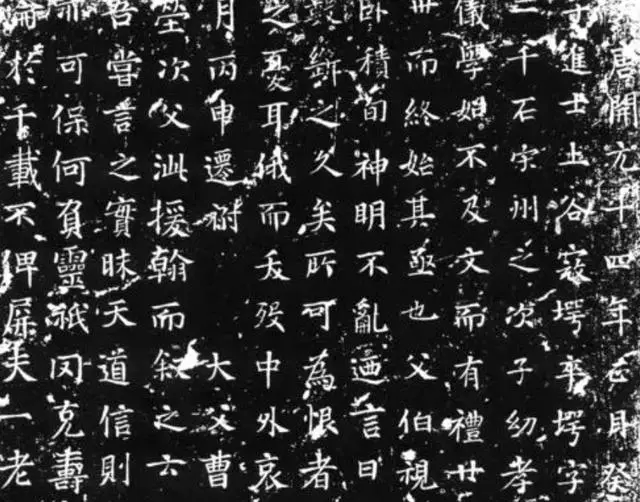 唐開元十四年正月癸
子進士上谷寇堮卒堮字
二千石宋州之次子幼孝
儀學如不及文而有禮廿
而終始其亟也父伯視
卧積旬神明不亂迺言曰
之久矣所可為恨者
之憂耳俄而夭歿中外哀
月丙申遷祔 大父曹
塋次父泚援翰而叙之云
吾嘗言之實昧天道信則
亦可保何負靈祇罔克壽
於千載不俾屏夫一老